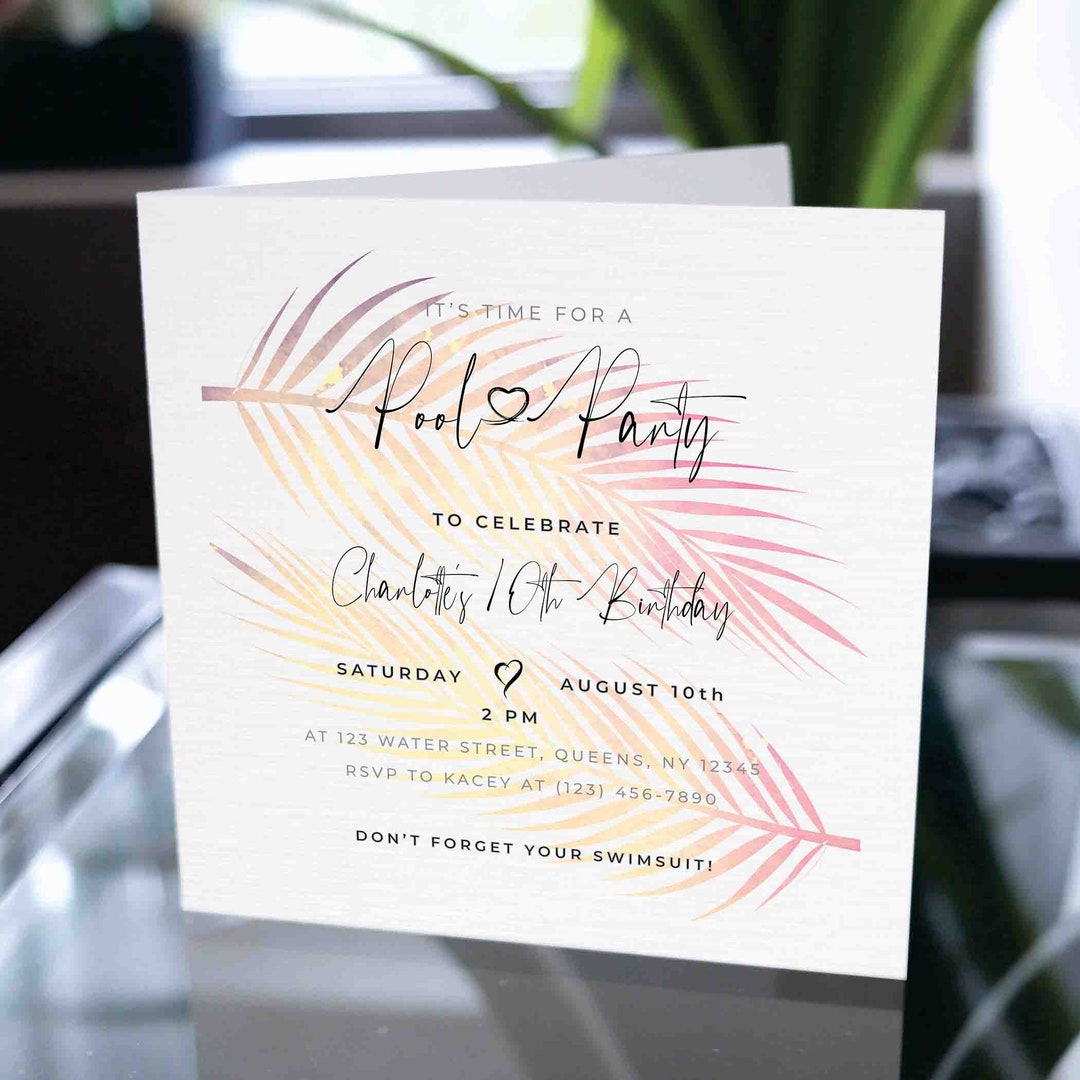 IT'S TIME FOR A
Pool Party
TO CELEBRATE
Charlotte's 10th Birthday
SATURDAY AUGUST 10th
2 PM
AT 123 WATER STREET, QUEENS, NY 12345
RSVP TO KACEY AT (123) 456-7890
DON'T FORGET YOUR SWIMSUIT!